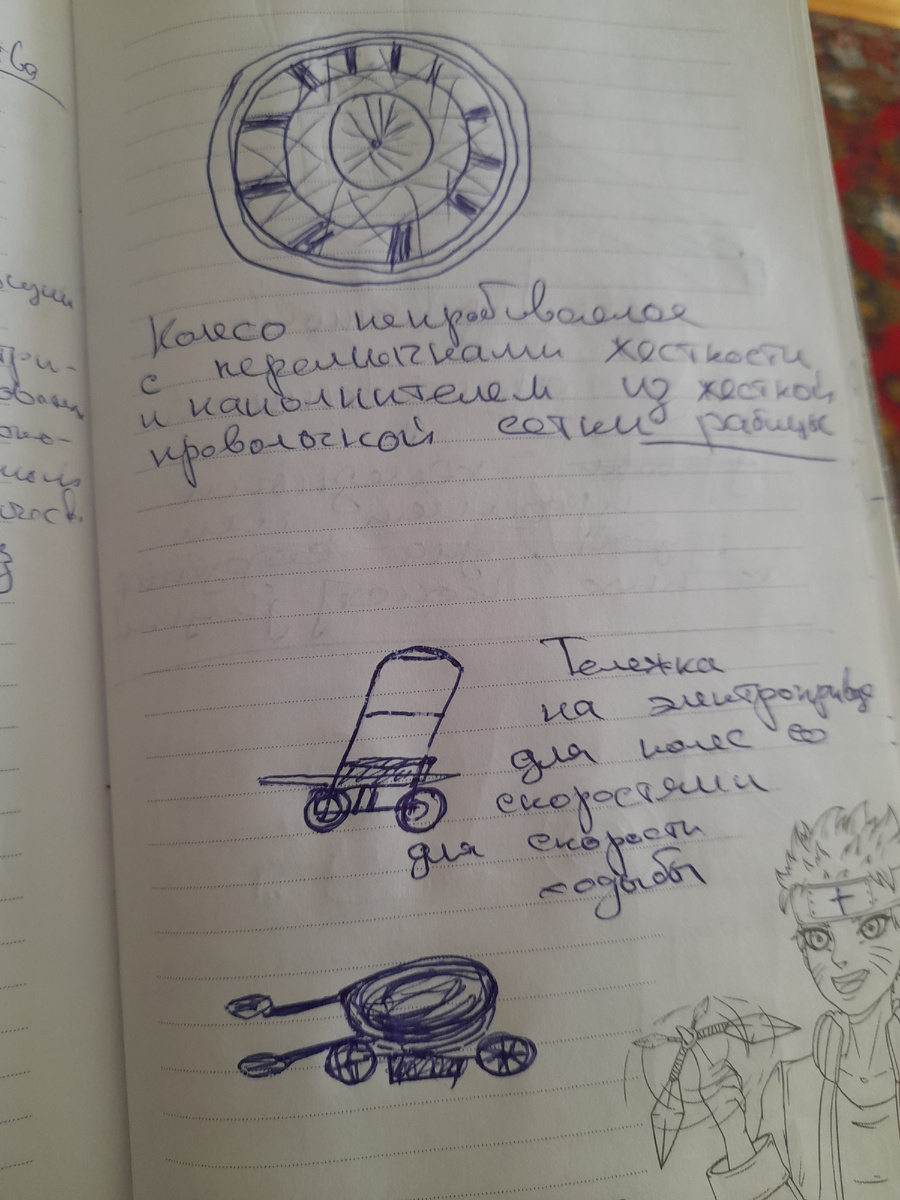 Колесо непробиваемое
с перемычками жесткости
и наполнителем из жесткой
проволочной сетки рабицы
Тележка
на электроприводе
для колес со
скоростями
для скорости
ходьбы